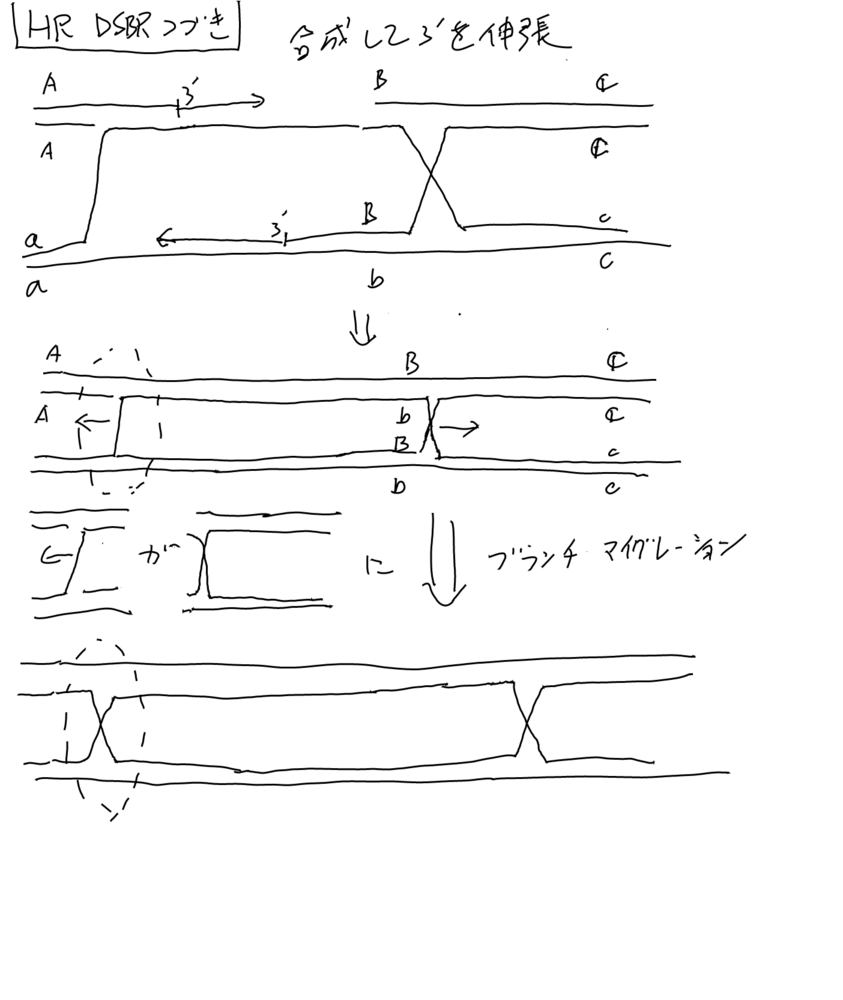 HR DSBRつづき
合成して3'を伸張
A 3' B C
A C
a 3' B c
a b c
A B C
A b C
B c
b c
← が に ブランチ マイグレーション